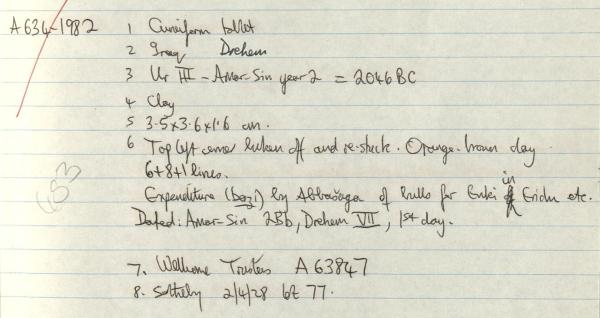 A634-1982 1 Cuneiform tablet
2 Iraq Drehem
3 Ur III - Amar-Sin year 2 = 2046 BC
4 Clay
5 3.5x3.6x1.6 cm.
6 Top left corner broken off and re-stuck. Orange-brown clay.
6+8+1 lines.
Expenditure (bazi) by Abbašaga of bulls for Enki in Eridu etc.
Dated: Amar-Sin 2Bb, Drehem VII, 1st day.
653
7. Wellcome Trustees A 63847
8. Sotheby 2/4/28 lot 77.